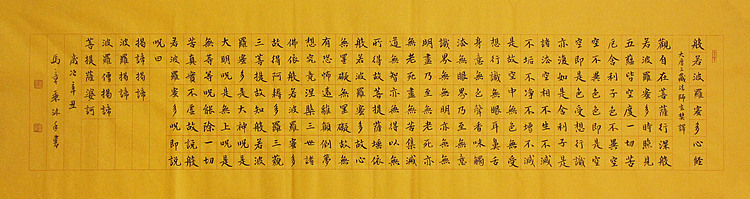 般若波羅蜜多心經
大唐三藏法師玄奘譯
觀自在菩薩行深般
若波羅蜜多時照見
五蘊皆空度一切苦
厄舍利子色不異空
空不異色色即是空
空即是色受想行識
亦復如是舍利子是
諸法空相不生不滅
不垢不淨不增不減
是故空中無色無受
想行識無眼耳鼻舌
身意無色聲香味觸
法無眼界乃至無意
識界無無明亦無無
明盡乃至無老死亦
無老死盡無苦集滅
道無智亦無得以無
所得故菩提薩埵依
般若波羅蜜多故心
無罣礙無罣礙故無
有恐怖遠離顛倒夢
想究竟涅槃三世諸
佛依般若波羅蜜多
故得阿耨多羅三藐
三菩提故知般若波
羅蜜多是大神呪是
大明呪是無上呪是
無等等呪能除一切
苦真實不虛故說般
若波羅蜜多呪即說
呪曰
揭諦揭諦
波羅揭諦
波羅僧揭諦
菩提薩婆訶
歲次辛丑
馬 沐手書